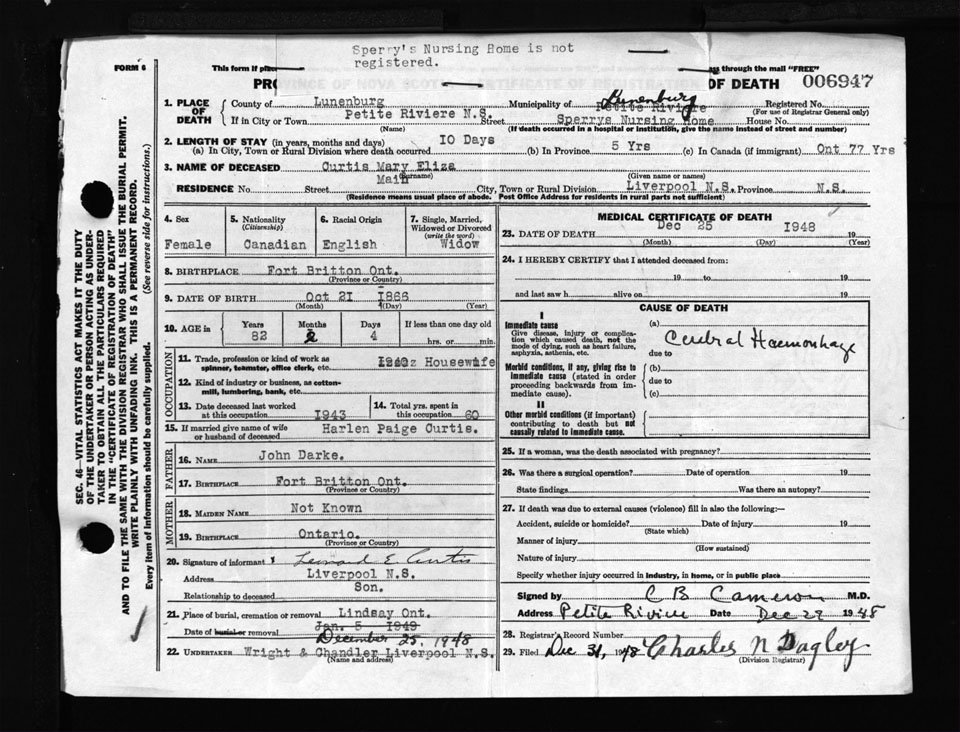 Sperry's Nursing Home is not
registered.
FORM 6
This form if
ss through the mail "FREE"
PROVINCE OF NOVA SCOTIA CERTIFICATE OF REGISTRATION OF DEATH
006947
1. PLACE OF DEATH
County of Lunenburg Municipality of Petite Riviere Lunenburg Registered No.
(For use of Registrar General only)
If in City or Town Petite Riviere N.S. Street Sperrys Nursing Home House No.
(Name) (If death occurred in a hospital or institution, give the name instead of street and number)
2. LENGTH OF STAY (in years, months and days) 10 Days 5 Yrs Ont 77 Yrs
(a) In City, Town or Rural Division where death occurred (b) In Province (c) In Canada (if immigrant)
3. NAME OF DECEASED Curtis Mary Eliza
(Surname) (Given name or names)
RESIDENCE No. Street Main City, Town or Rural Division Liverpool N.S. Province N.S.
(Residence means usual place of abode. Post Office Address for residents in rural parts not sufficient)
4. Sex
Female
5. Nationality
(Citizenship)
Canadian
6. Racial Origin
English
7. Single, Married,
Widowed or Divorced
(write the word)
Widow
8. BIRTHPLACE Fort Britton Ont.
(Province or Country)
9. DATE OF BIRTH Oct 21 1866
(Month) (Day) (Year)
10. AGE in
Years Months Days If less than one day old
82 2 4 hrs. or min.
OCCUPATION
11. Trade, profession or kind of work as
spinner, teamster, office clerk, etc. Housewife
12. Kind of industry or business, as cotton-
mill, lumbering, bank, etc.
13. Date deceased last worked
at this occupation 1943
14. Total yrs. spent in
this occupation 60
15. If married give name of wife
or husband of deceased Harlen Paige Curtis.
FATHER
16. NAME John Darke.
17. BIRTHPLACE Fort Britton Ont.
(Province or Country)
MOTHER
18. MAIDEN NAME Not Known
19. BIRTHPLACE Ontario.
(Province or Country)
20. Signature of informant x Leonard E Curtis
Address Liverpool N.S.
Relationship to deceased Son.
21. Place of burial, cremation or removal Lindsay Ont.
Jan. 5 1949
Date of burial or removal December 25, 1948
22. UNDERTAKER Wright & Chandler Liverpool N.S.
(Name and address)
MEDICAL CERTIFICATE OF DEATH
23. DATE OF DEATH Dec 25 1948 19
(Month) (Day) (Year)
24. I HEREBY CERTIFY that I attended deceased from:
19 to 19
and last saw h alive on 19
CAUSE OF DEATH
I
Immediate cause
Give disease, injury or complica-
tion which caused death, not the
mode of dying, such as heart failure,
asphyxia, asthenia, etc.
(a) Cerebral Haemorrhage
due to
Morbid conditions, if any, giving rise to
immediate cause (stated in order
proceeding backwards from im-
mediate cause).
(b)
due to
(c)
II
Other morbid conditions (if important)
contributing to death but not
causally related to immediate cause.
25. If a woman, was the death associated with pregnancy?
26. Was there a surgical operation? Date of operation 19
State findings Was there an autopsy?
27. If death was due to external causes (violence) fill in also the following:—
Accident, suicide or homicide? Date of injury 19
(State which)
Manner of injury
(How sustained)
Nature of injury
Specify whether injury occurred in industry, in home, or in public place
Signed by C B Cameron M.D.
Address Petite Riviere Date Dec 29 1948
28. Registrar's Record Number
29. Filed Dec 31, 1948 Charles N Dagley
(Division Registrar)
SEC. 46—VITAL STATISTICS ACT MAKES IT THE DUTY
OF THE UNDERTAKER OR PERSON ACTING AS UNDER-
TAKER TO OBTAIN ALL THE PARTICULARS REQUIRED
IN THE "CERTIFICATE OF REGISTRATION OF DEATH"
AND TO FILE THE SAME WITH THE DIVISION REGISTRAR WHO SHALL ISSUE THE BURIAL PERMIT.
WRITE PLAINLY WITH UNFADING INK. THIS IS A PERMANENT RECORD.
Every item of information should be carefully supplied. (See reverse side for instructions.)